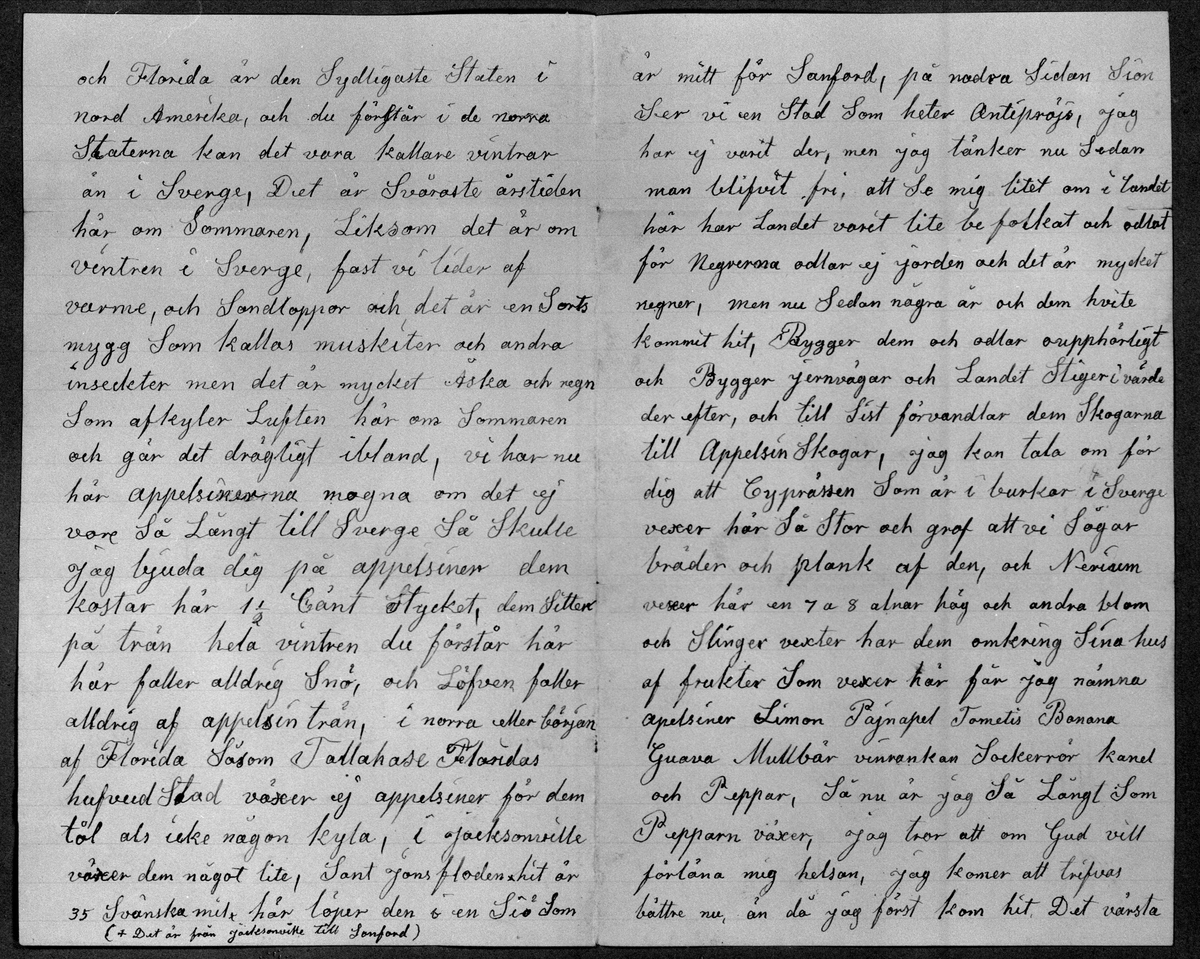 och Florida är den Sydligaste Staten i
nord Amerika, och du förstår i de norra
Staterna kan det vara kallare vintrar
än i Sverge, Det är Svåraste årstiden
här om Sommaren, Liksom det är om
vintren i Sverge, fast vi lider af
varme, och Sandloppor och det är en Sorts
mygg Som kallas muskiter och andra
inseckter men det är mycket Åska och regn
Som afkyler Luften här om Sommaren
och gör det drägligt ibland, vi har nu
här appelsinerna mogna om det ej
vore Så Långt till Sverge Så Skulle
jag bjuda dig på appelsiner dem
kostar här 1½ Cänt Stycket, dem Sitter
på trän hela vintren du förstår här
här faller alldrig Snö, och Löfven faller
alldrig af appelsin trän, i norra eller början
af Florida Såsom Tallahase Floridas
hufvud Stad växer ej appelsiner för dem
tål als icke någon kyla, i jacksonville
växer dem något lite, Sant Jons floden x hit är
35 Svänska mil x här löper den i en Siö Som
(+ Det är från jacksonville till Sanford)
är mitt för Sanford, på nadra Sidan Siön
Ser vi en Stad Som heter Antipröjs, jag
har ej varit der, men jag tänker nu Sedan
man blifvit fri, att Se mig litet om i Landet
här har Landet varit lite be folkat och odlat
för Negrerna odlar ej jorden och det är mycket
negrer, men nu Sedan några år och dem hvite
kommit hit, Bygger dem och odlar oupphörligt
och Bygger jernvägar och Landet Stiger i värde
der efter, och till Sist förvandlar dem Skogarna
till Appelsin Skogar, jag kan tala om för
dig att Cyprässen Som är i burkar i Sverge
vexer här Så Stor och grof att vi Sågar
bräder och plank af den, och Nerium
vexer här en 7 a 8 alnar hög och andra blom
och Slinger vexter har dem omkring Sina hus
af frukter Som vexer här får jag nämna
apelsiner Limon Pajnapel Tometis Banana
Guava Mullbär vinrankan Sockerrör kanel
och Peppar, Så nu är jag Så Långt Som
Pepparn växer, jag tror att om Gud vill
förläna mig helsan, jag komer att trifvas
bättre nu, än då jag först kom hit. Det värsta